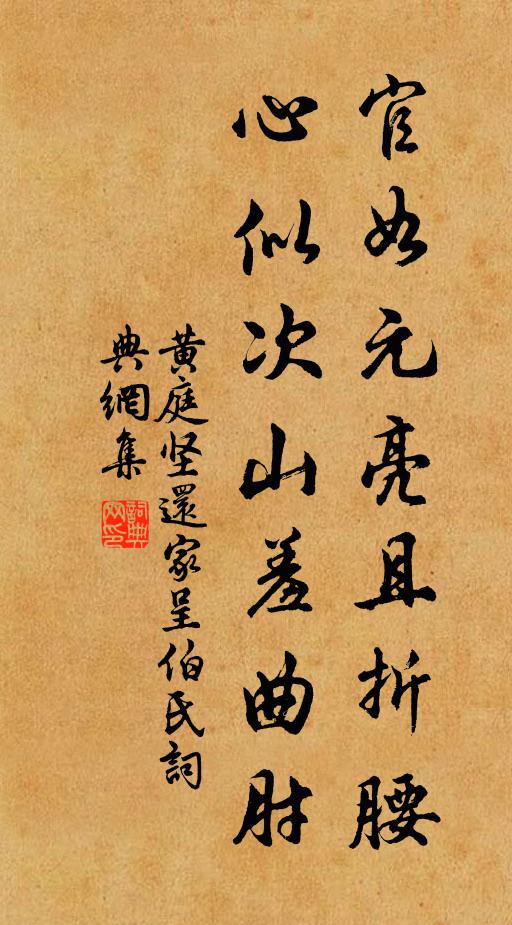 官如元亮且折腰
心似次山羞曲肘
黄庭坚還家呈伯氏詞
典網集
詞典网印